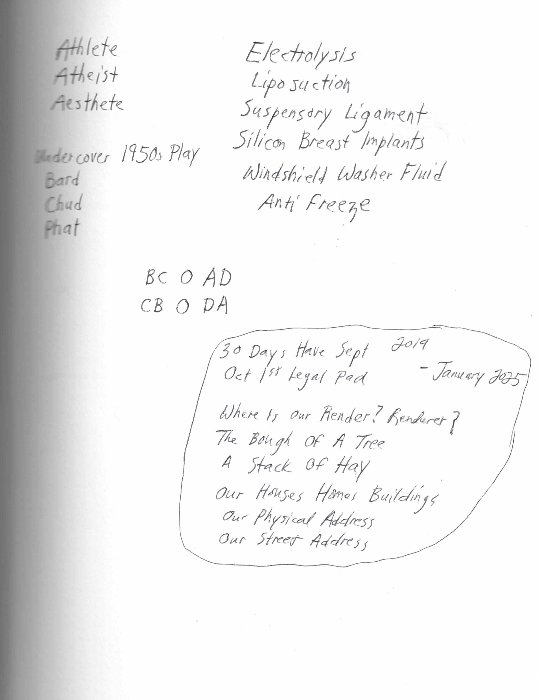 Athlete
Atheist
Aesthete
Undercover 1950s Play
Bard
Chud
Phat
Electrolysis
Liposuction
Suspensory Ligament
Silicon Breast Implants
Windshield Washer Fluid
Anti Freeze
BC O AD
CB O DA
30 Days Have Sept 2019
Oct 1st Legal Pad - January 2025
Where Is Our Render? Renderer?
The Bough Of A Tree
A Stack Of Hay
Our Houses Homes Buildings
Our Physical Address
Our Street Address